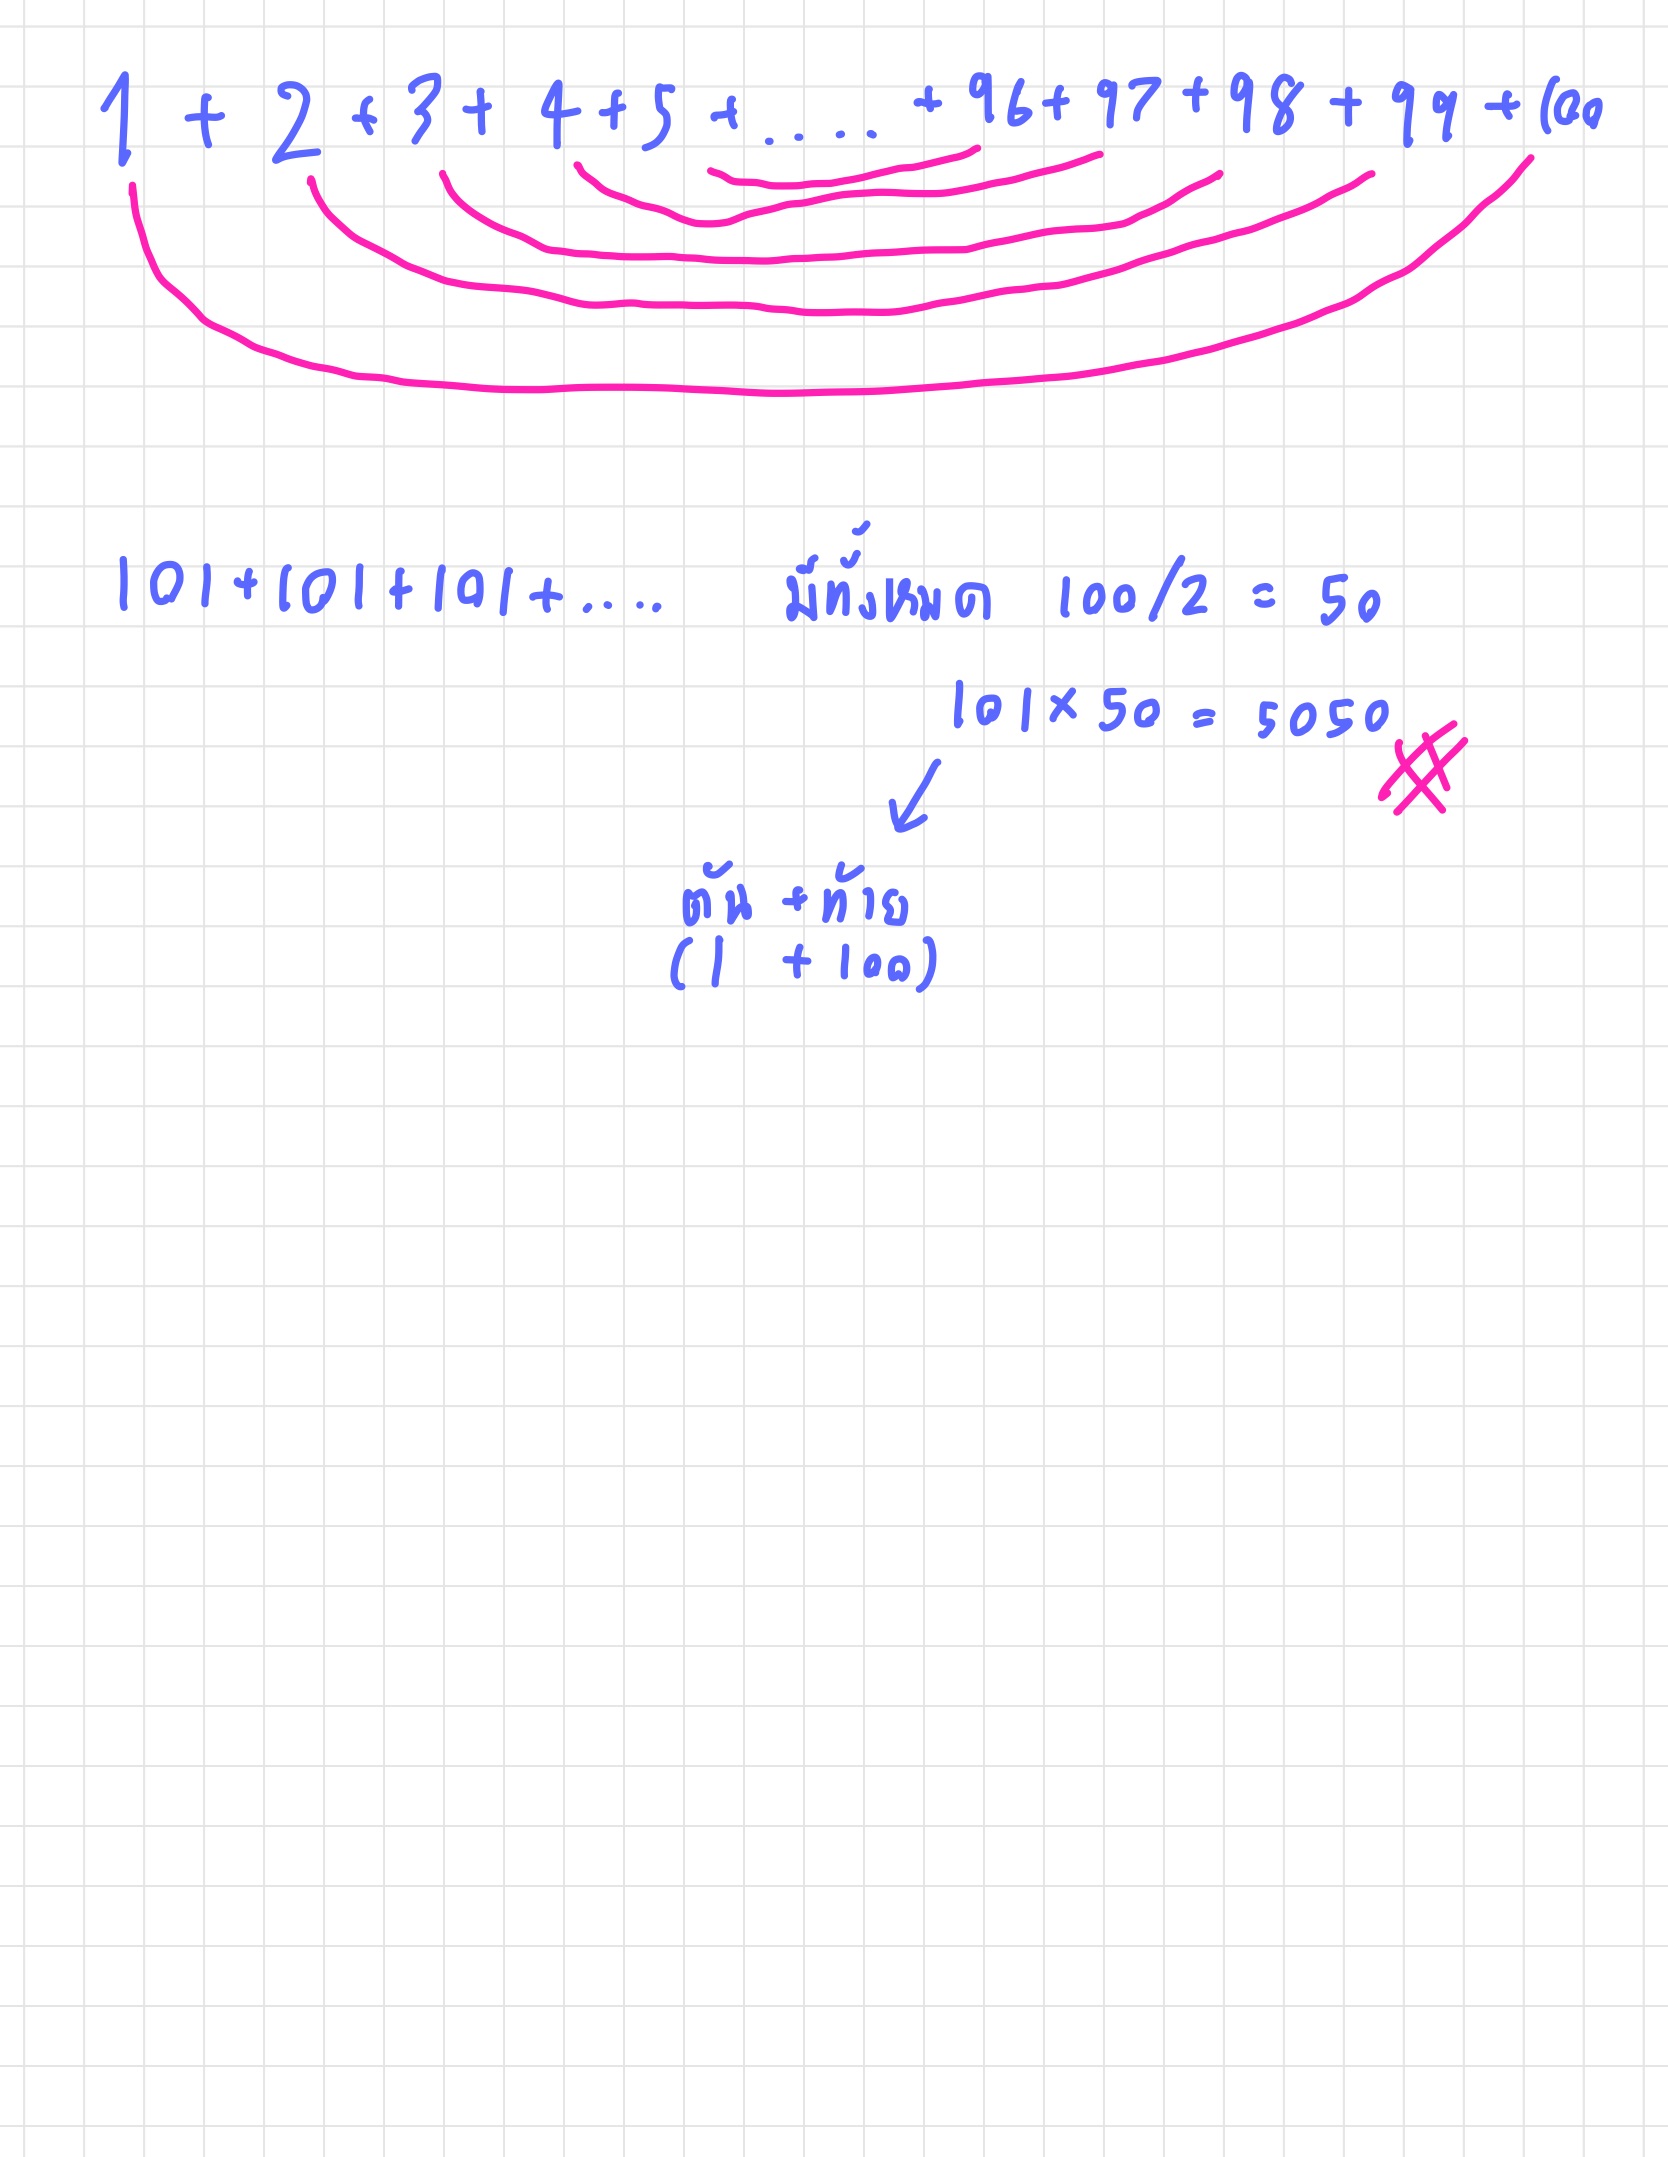 1 + 2 + 3 + 4 + 5 + ..... + 96 + 97 + 98 + 99 + 100
101 + 101 + 101 + .... มีทั้งหมด 100/2 = 50
101 × 50 = 5050
ต้น + ท้าย
(1 + 100)